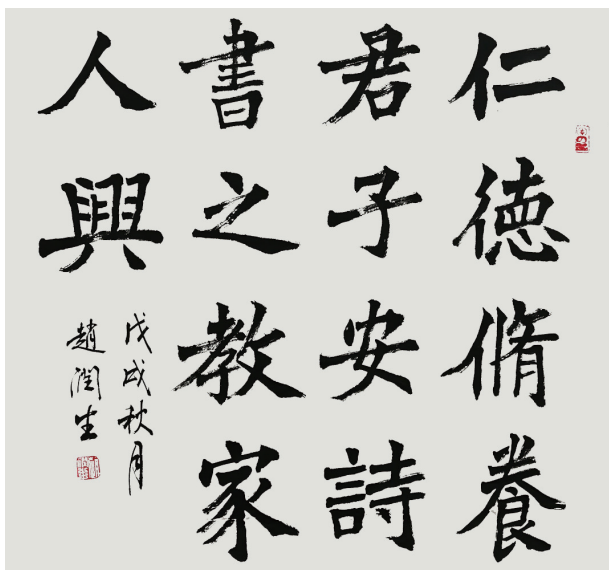 仁德脩養
君子安詩
書之教家
人興
戊戌秋月
趙潤生